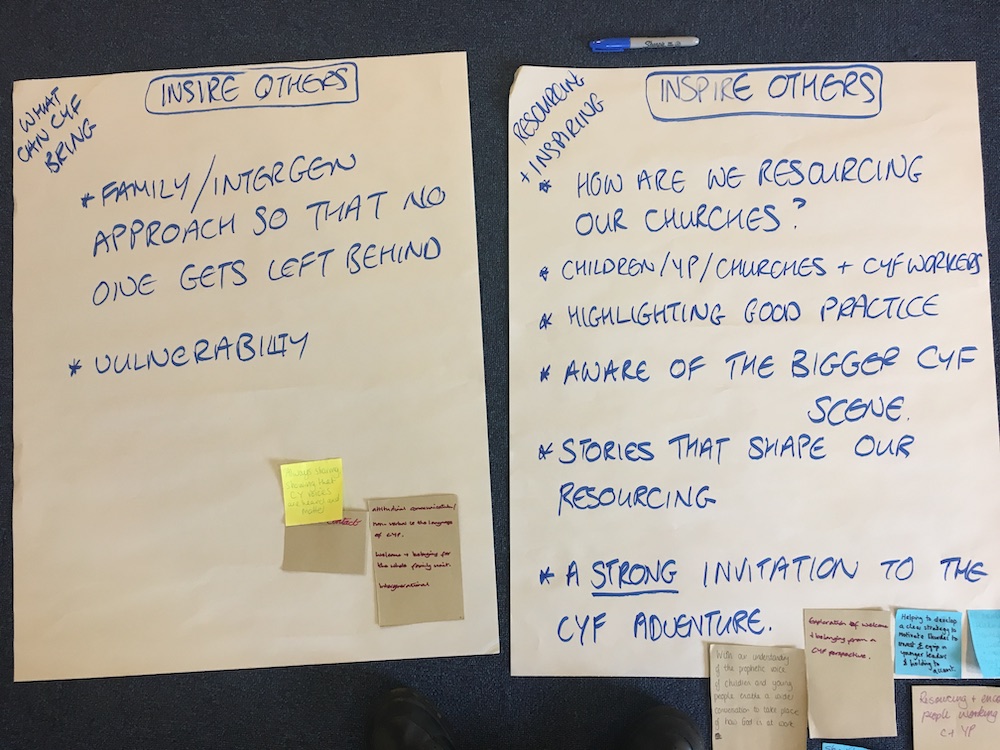 WHAT
CAN CYF
BRING
INSIRE OTHERS
* FAMILY/INTERGEN
APPROACH SO THAT NO
ONE GETS LEFT BEHIND
* VULNERABILITY
Always sharing
hearing that
CY voices
are heard and
matter
contact
attitudinal communication/
non-verbal is the language
of CYP.
Welcome + belonging for
the whole family unit.
Intergenerational
Sharpie
RESOURCING
+ INSPIRING
INSPIRE OTHERS
* HOW ARE WE RESOURCING
OUR CHURCHES?
* CHILDREN/YP/CHURCHES + CYF WORKERS
* HIGHLIGHTING GOOD PRACTICE
* AWARE OF THE BIGGER CYF
SCENE.
* STORIES THAT SHAPE OUR
RESOURCING
* A STRONG INVITATION TO THE
CYF ADVENTURE.
With our understanding
of the prophetic voice
of children and young
people enable a wider
conversation to take place
of how God is at work
Exploration of welcome
+ belonging from a
CYF perspective.
Helping to develop
a clear strategy to
motivate churches to
invest & equip in
younger leaders
& building to
Resourcing +
people working
C + YP